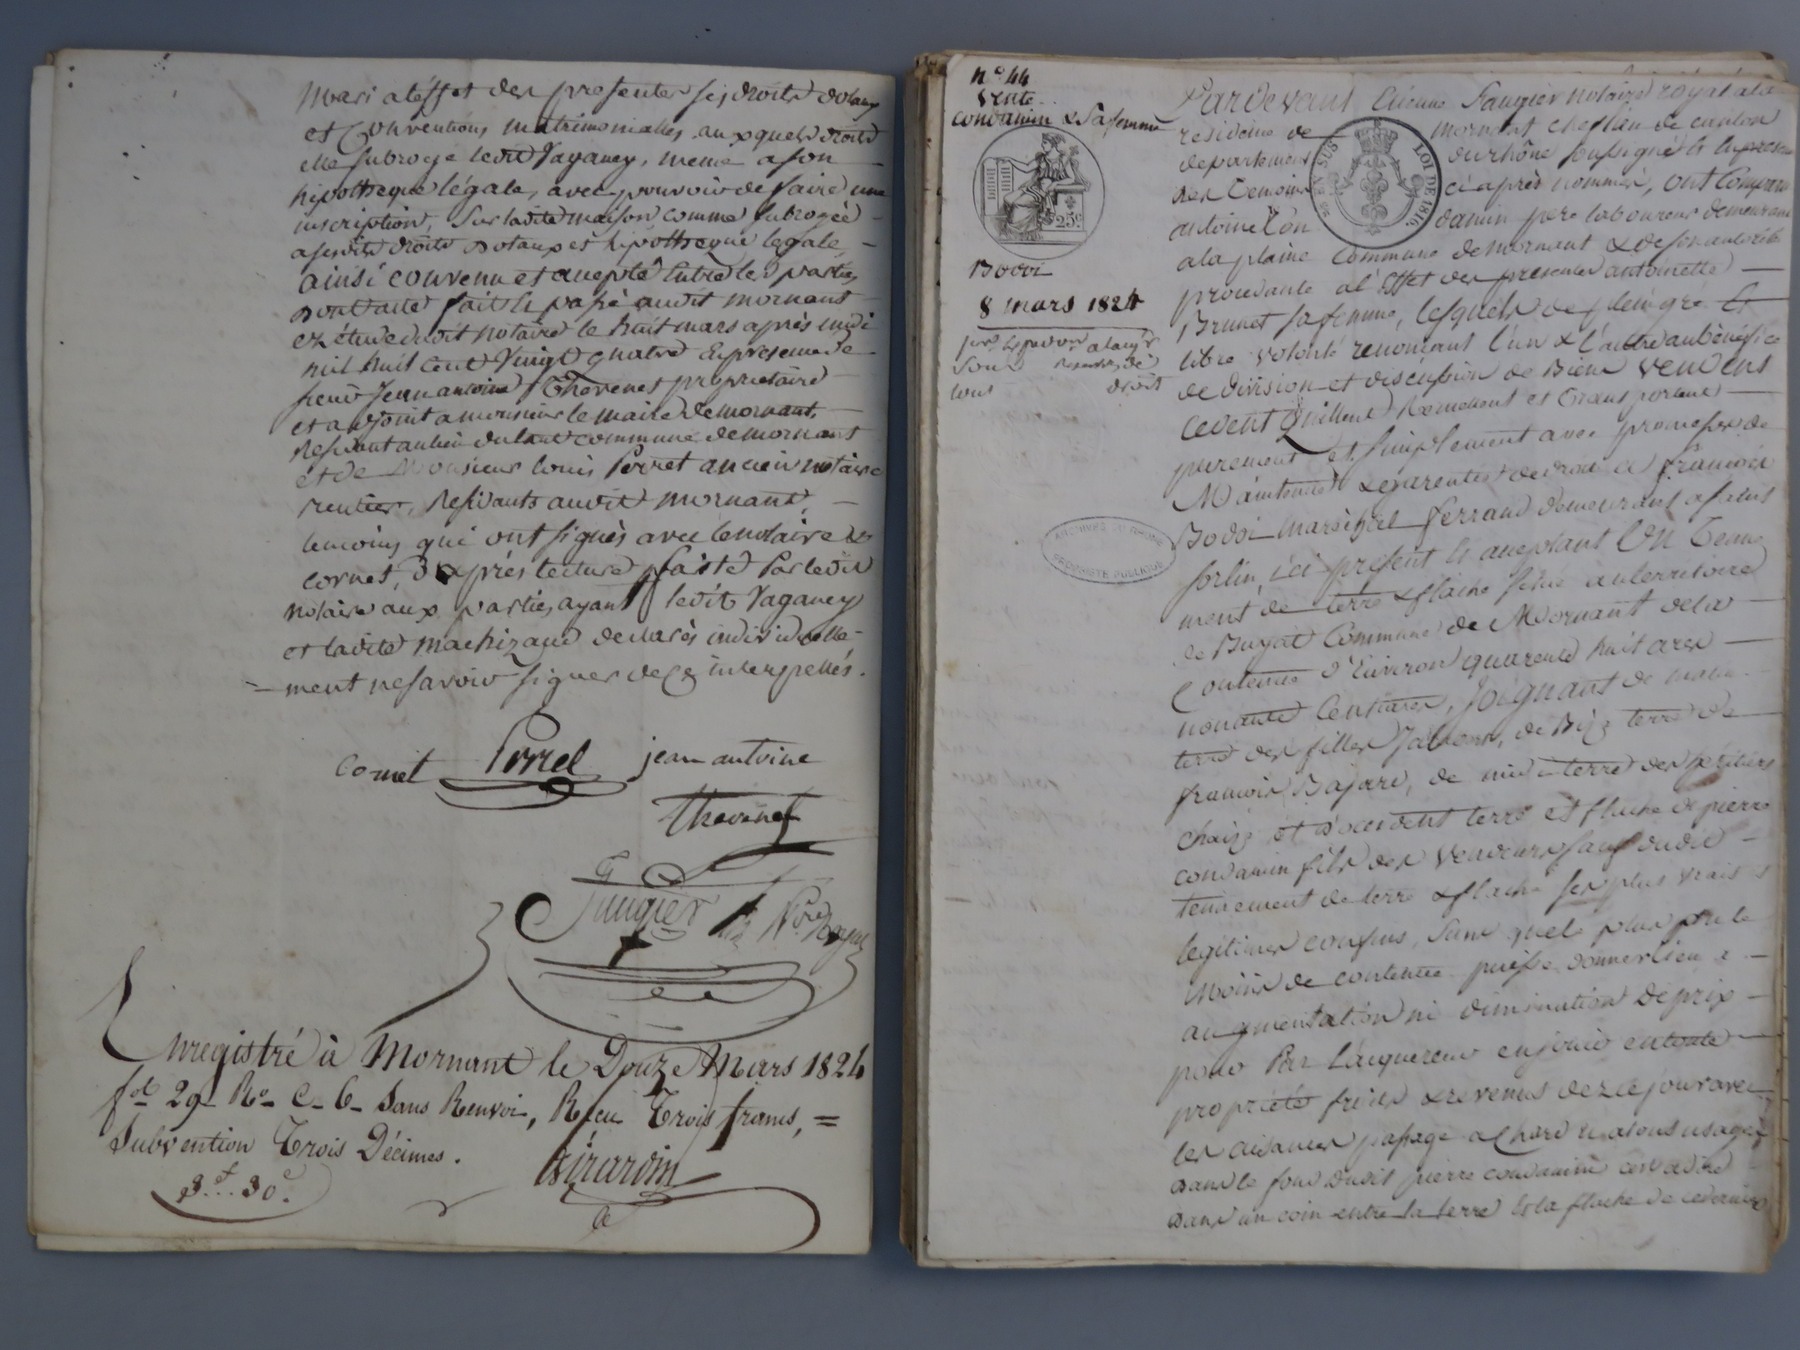 mari a l'éffet des presentes ses droits dotaux
et Conventions matrimonialles aux quels droits
elle subroge ledit Vaganey, meme a son
hipotheque légale, avec pouvoir de faire une
inscription, Sur ladite maison comme subrogée
a sesdits droits dotaux et hipotheque legale,
ainsi convenu et accepté entre les parties
dont acte fait & passé audit mornant
ez étude dudit notaire le huit mars après midi
mil huit cent Vingt quatre En presence de
sieur Jean antoine Thevenet proprietaire
et adjoint a monsieur le maire de mornant,
Residant au lieu du commune de mornant
et de Monsieur louis Perret ancien notaire
rentier, Residants audit mornant,
temoins qui ont signés avec le notaire &
cornet, D'après lecture faite Par ledit
notaire aux parties ayant ledit Vaganey
et ladite machizaud declarés individuelle-
ment ne savoir signer de ce interpellés.
cornet Perret jean antoine
thevenet
Faugier Nore Royal
Enregistré à Mornant le Douze Mars 1824
fol 29 Ro C. 6 Sans Renvoi, Reçu Trois francs, =
Subvention Trois Décimes.
3f. 30c. Girardin
No 44
Vente
condamin & Sa femme
25c
Bodoi
8 mars 1824
droit
EN SUS
LOI DE 1816
ARCHIVES DU RHONE
PROPRIÉTÉ PUBLIQUE
Par devant Etienne Faugier notaire royal a la
residence de mornant chef lieu de canton
departement du rhône soussigné & En presence
des Temoins ci après nommés, ont Comparu
antoine Con damin pere laboureur demeurant
a la plaine Commune de mornant & de son autorité
procedante a l'Effet des presentes antoinette
Brunet sa femme, lesquels de plein gré &
libre volonté renonçant l'un & l'autre au bénéfice
de division et discussion de Biens vendent
cedent quittent Remettent et Transportent
purement et simplement avec promesses de
Maintenue & garenties de droit a francois
Bodoi maréchal ferrand demeurant a saint
sorlin, ici présent & acceptant Un Tene-
ment de terre & flache situé au territoire
de Buyat Commune de Mornant de la
Contenue d'Environ quarente huit ares
nonante Centiares, Joignant de matin
terre des filles Jasseron, de Bize terre de
francois Bajard, de midi terre des héritiers
chaize et d'occident terre et flache de pierre
condamin fils des vendeurs sauf dudit
tenement de terre & flache ses plus vrais &
legitimes confins, Sans que le plus ou le
moins de contenue puisse donner lieu a
augmentation ni diminution de prix
pour Par l'acquereur en jouir en toute
propriété fruits & revenus dez ce jour avec
les aisances passage a Chard & a tous usages
dans le fond dudit pierre condamin cest adire
dans un coin entre la terre & la flache de ce dernier